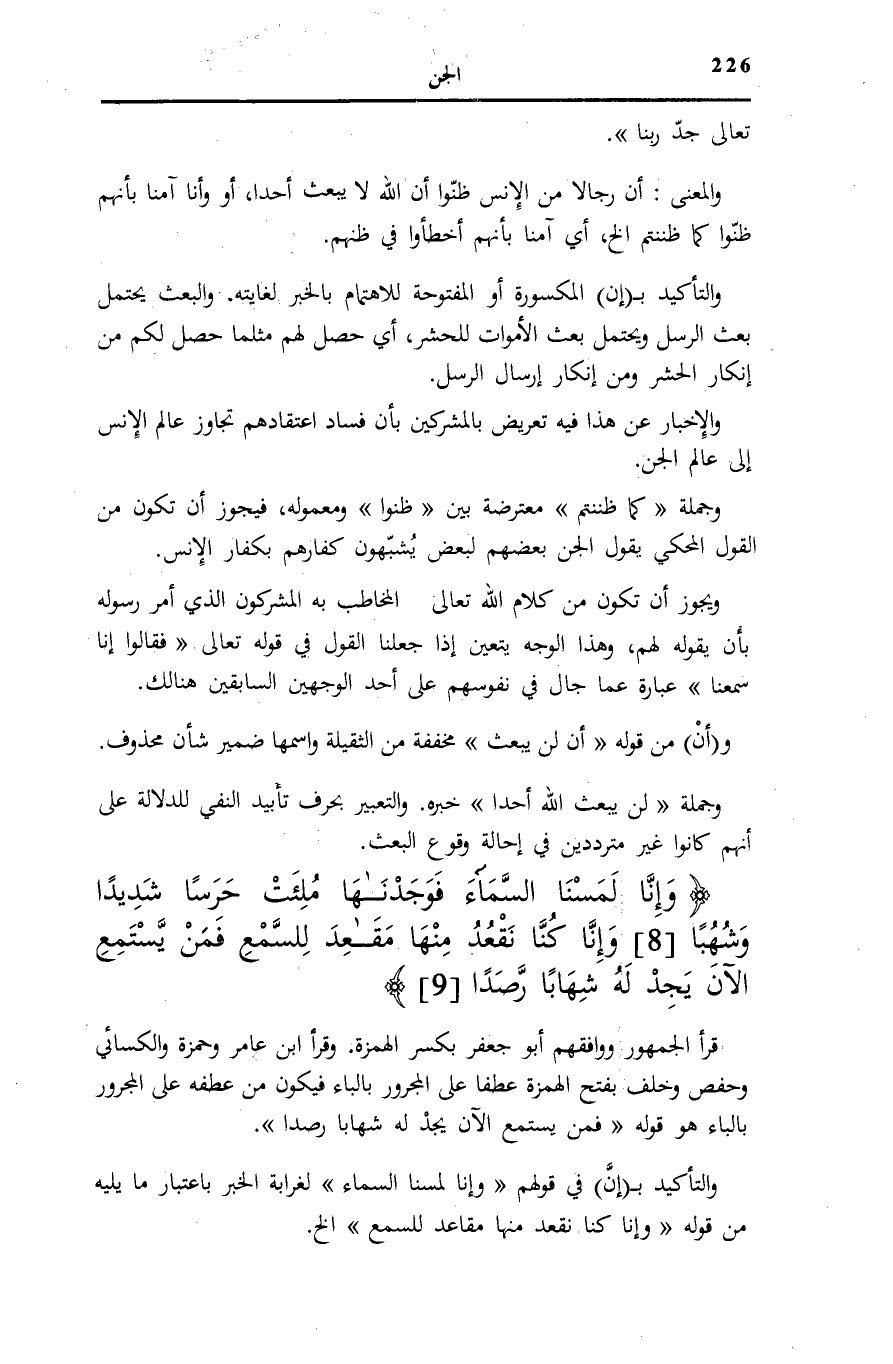 226
الجن
تعالى جدّ ربنا ».
والمعنى : أن رجالا من الإنس ظنّوا أن الله لا يبعث أحدا، أو وأنا آمنا بأنهم
ظنّوا كما ظننتم الخ، أي آمنا بأنهم أخطأوا في ظنهم.
والتأكيد بـ(إن) المكسورة أو المفتوحة للاهتمام بالخبر لغايته. والبعث يحتمل
بعث الرسل ويحتمل بعث الأموات للحشر، أي حصل لهم مثلما حصل لكم من
إنكار الحشر ومن إنكار إرسال الرسل.
والإخبار عن هذا فيه تعريض بالمشركين بأن فساد اعتقادهم تجاوز عالم الإنس
إلى عالم الجن.
وجملة « كما ظننتم » معترضة بين « ظنوا » ومعموله، فيجوز أن تكون من
القول المحكي يقول الجن بعضهم لبعض يُشبّهون كفارهم بكفار الإنس.
ويجوز أن تكون من كلام الله تعالى المخاطب به المشركون الذي أمر رسوله
بأن يقوله لهم، وهذا الوجه يتعين إذا جعلنا القول في قوله تعالى « فقالوا إنا
سمعنا » عبارة عما جال في نفوسهم على أحد الوجهين السابقين هنالك.
و(أنْ) من قوله « أن لن يبعث » مخففة من الثقيلة واسمها ضمير شأن محذوف.
وجملة « لن يبعث الله أحدا » خبره. والتعبير بحرف تأبيد النفي للدلالة على
أنهم كانوا غير مترددين في إحالة وقوع البعث.
﴿ وَإِنَّا لَمَسْنَا السَّمَآءَ فَوَجَدْنَـٰهَا مُلِئَتْ حَرَسًا شَدِيدًا
وَشُهُبًا [8] وَإِنَّا كُنَّا نَقْعُدُ مِنْهَا مَقَـٰعِدَ لِلسَّمْعِ فَمَنْ يَّسْتَمِعِ
الآنَ يَجِدْ لَهُ شِهَابًا رَّصَدًا [9] ﴾
قرأ الجمهور ووافقهم أبو جعفر بكسر الهمزة. وقرأ ابن عامر وحمزة والكسائي
وحفص وخلف بفتح الهمزة عطفا على المجرور بالباء فيكون من عطفه على المجرور
بالباء هو قوله « فمن يستمع الآن يجدْ له شهابا رصدا ».
والتأكيد بـ(إنَّ) في قولهم « وإنا لمسنا السماء » لغرابة الخبر باعتبار ما يليه
من قوله « وإنا كنا نقعد منها مقاعد للسمع » الخ.